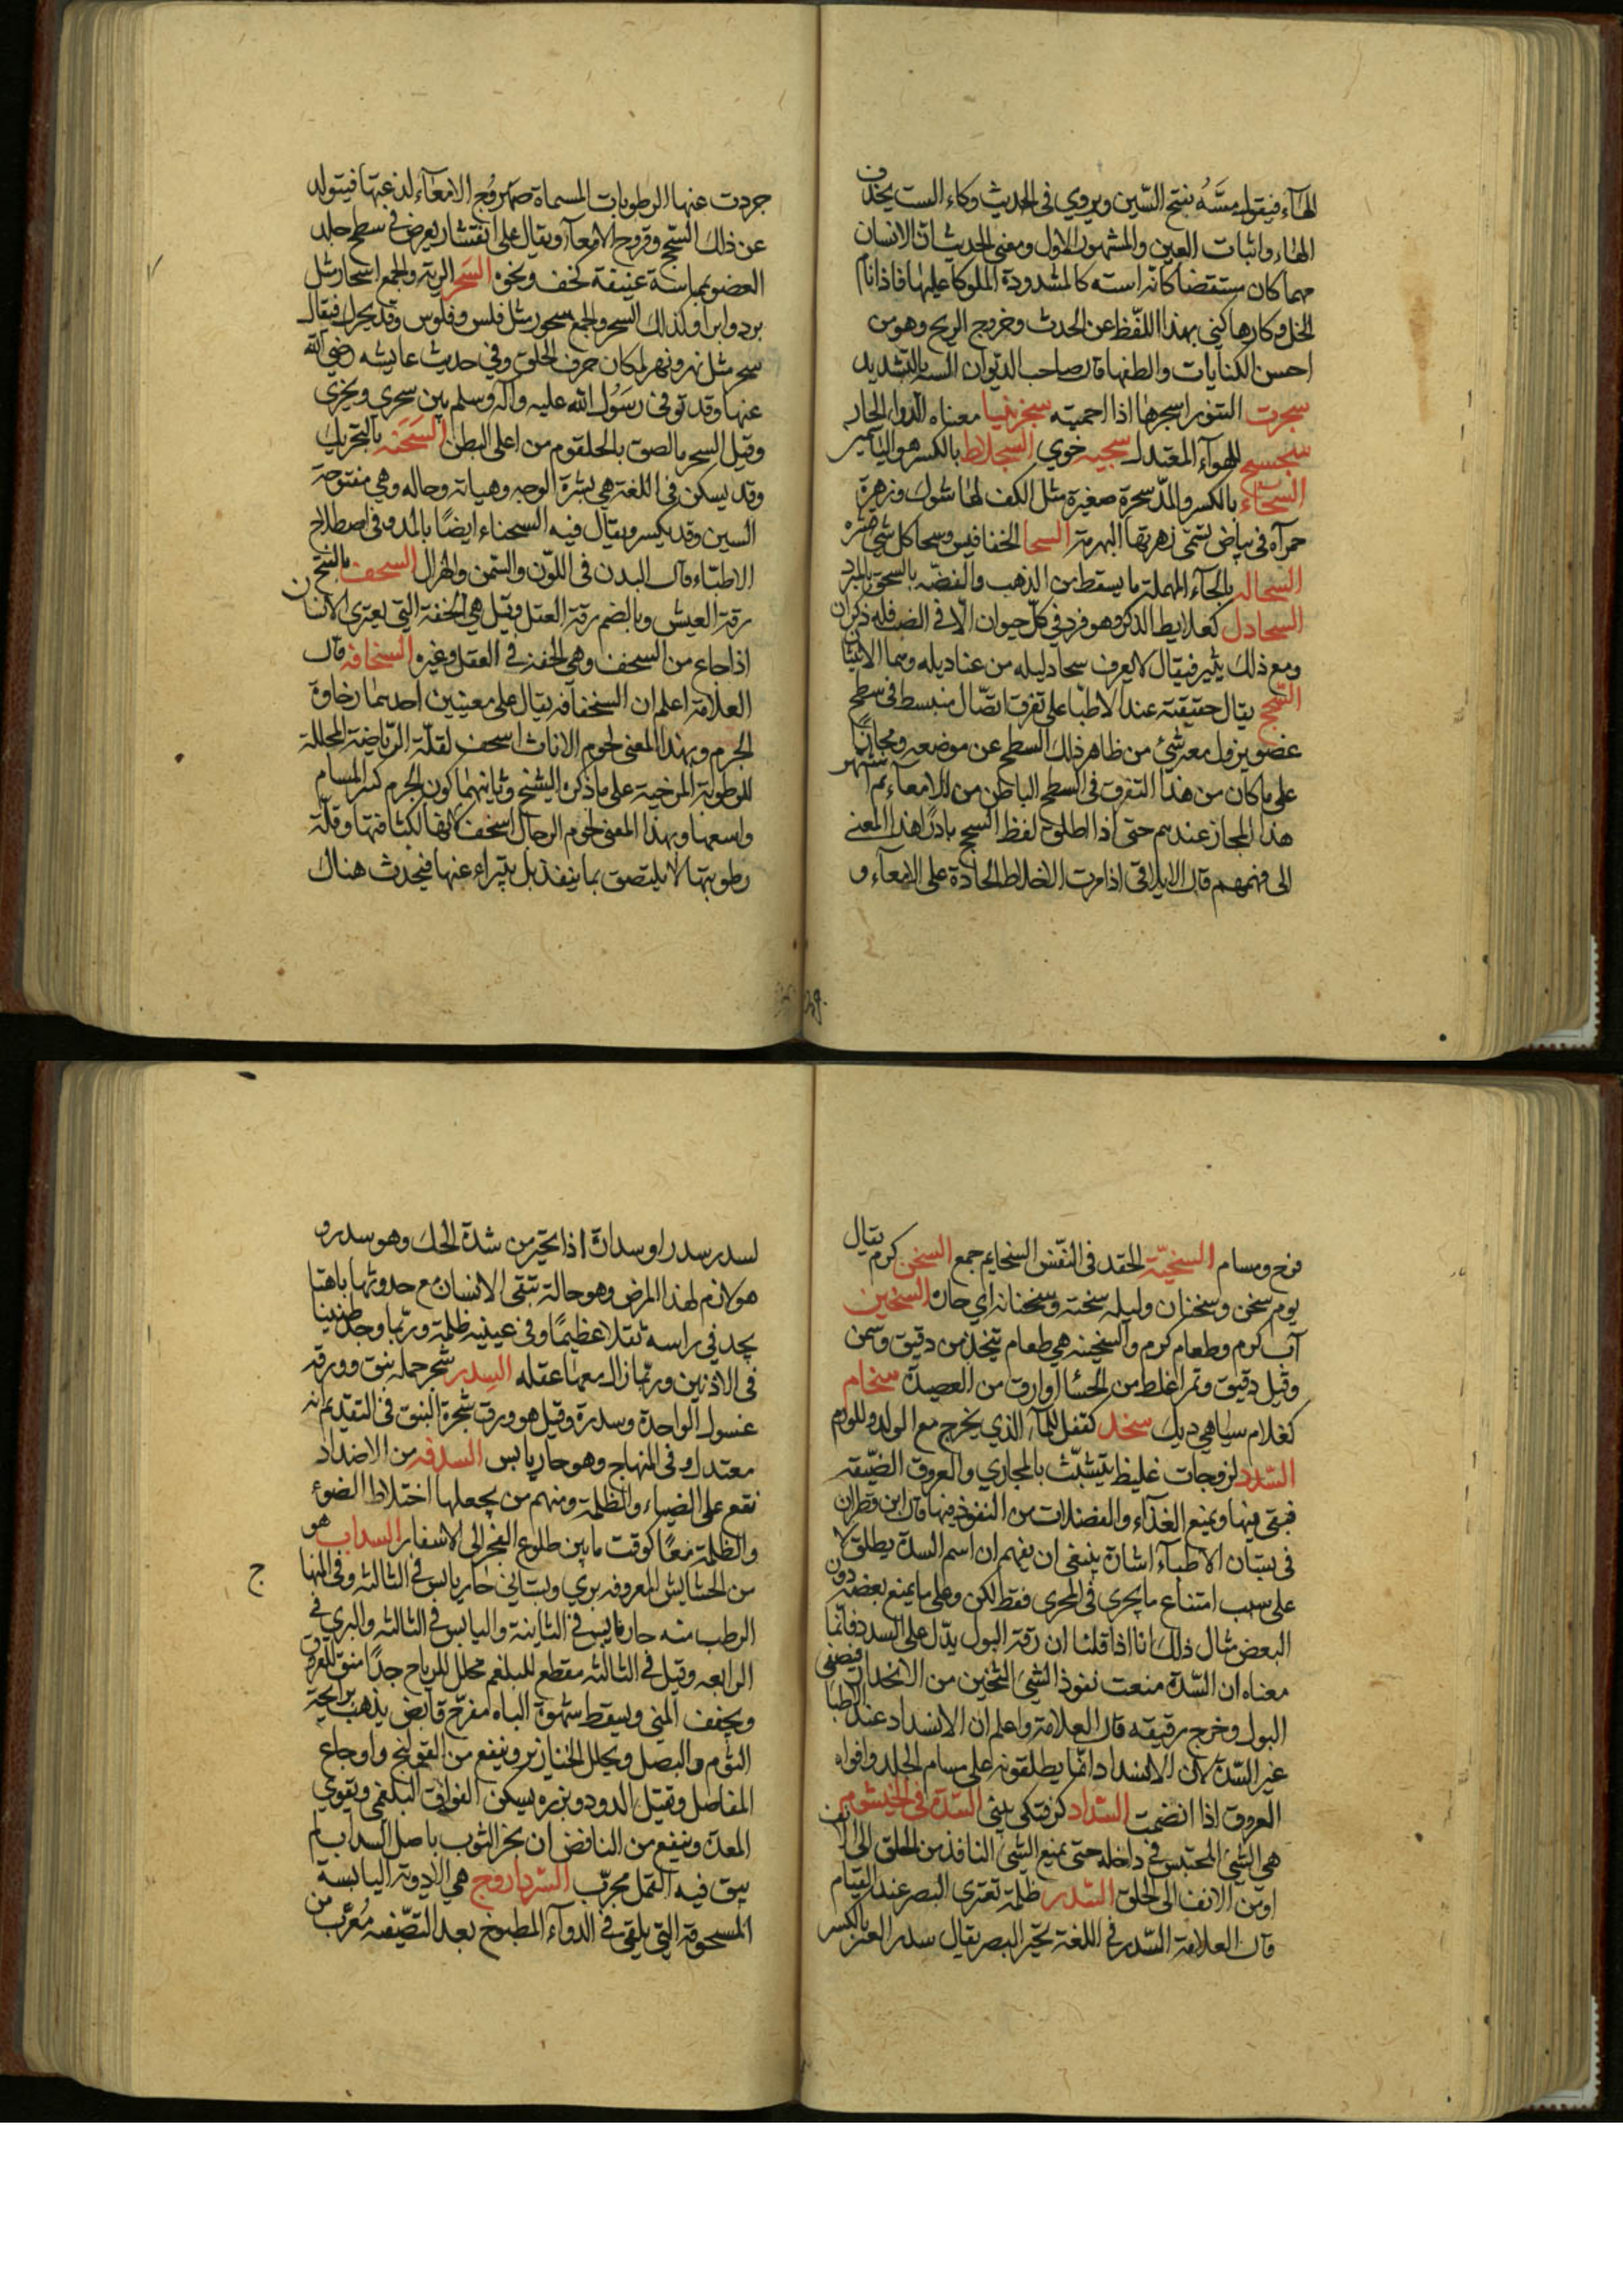 الهاء فيقول مسّه بفتح السّين ويروي في الحديث وكاء الست بحذف
الهاء واثبات العين والمشهور الاول ومعنى الحديث ان الانسان
مهما كان مستيقضا كانه استه كالمشدودة الملوكا عليها فاذا نام
انحل وكارها كني بهذا اللفظ عن الحدث وخروج الريح وهو من
احسن الكنايات والطفها قال صاحب الديوان السه بالتشديد
سجرت التنور اسجرها اذا احميته سجزنيا معناه الدوا الحار
سجسج للهواء المعتدل سجيه خوي السجلاط بالكسر هو الياسمين
السحّاء بالكسر والمدّ سجرة صغيرة مثل الكف لها شوك وزهرة
حمرآء في بياض تسمّى زهرتها البهرمة السحا الخفافيس وسحا كل شي قشره
السحاله بالحآء المهملة ما يسقط من الذهب والفضّه بالسحق بالمبرد
السحادل كعلايط الذكر وهو فرد في كلّ حيوان الّا في الضب فله ذكران
ومع ذلك يثير فيقال لا يعرف سحادليله من عناديله وهما الانثيان
السّحج يقال حقيقة عند الاطبا على تفرق اتصّال منبسط في سطح
عضو يزول معه شئ من ظاهر ذلك السطح عن موضعه ومجازًا
على ما كان من هذا التفرق في السطح الباطن من الامعاء ثم اشتهر
هذا المجاز عندهم حتى اذا اطلق لفظ السحج بادر هذا المعنى
الى فهمهم قال الايلاقي اذا مرت الاخلاط الحادة على الامعآء و
جردت عنها الرطوبات المسماة صهروج الامعآء لذعتها فيتولد
عن ذلك السحج وقروح الامعآء ويقال على انقشار يعرض في سطح جلد
العضو بماسة عنيفة كخف ونحوه السَحر الرية والجمع اسحار مثل
برد وابراد وكذلك السحر والجمع سحور مثل فلس وفلوس وقد يحرك فيقال
سحر مثل نهر ونهر لمكان حرف الحلق وفي حديث عايشه رضي الله
عنها وقد توفى رسول الله عليه وآله وسلم بين سحري ونحري
وقيل السحر ما لصق بالحلقوم من اعلى البطن السَحَنه بالتحريك
وقد يسكن في اللغة هي بشرة الوجه وهياته وحاله وهي مفتوحة
السين وقد يكسر ويقال فيه السحناء ايضًا بالمد وفي اصطلاح
الاطباء قال البدن في اللّون والسّمن والهزال السخف بالفتح
رقة العيش وبالضم رقة العقل وقيل هي الخفة التي يعترى الانسان
اذا جاع من السخف وهي الخفة في العقل وغيره السخافه قال
العلامة اعلم ان السخافة يقال على معنيين احدهما رخاوة
الجرم وبهذا المعنى لحوم الاناث اسخف لقلّة الرياضة المحللة
للرطوبة المرخية على ما ذكره الشيخ وثانيهما كون الجرم كثير المسام
واسعها وبهذا المعنى لحوم الرجال اسخف لانها لكثافتها وقلّة
رطوبتها لا يلتصق بما ينفذ بل يتبراء عنها فيحدث هناك
فرج ومسام السخيّة الحقد في النّفس السخايم جمع السخن كرم يقال
يوم سخن وسخنان وليله سخنة وسخنانه اي حاره السخين
آب كرم وطعام كرم والسخينه هي طعام يتخذ من دقيق وسمن
وقيل دقيق وتمر اغلط من الحسا او ارق من العصيدة سخام
كغلام سياهي ديك سخد كقفل للمآء الذي يخرج مع الولد وللورم
السّدد لزوجات غليظ يتشبّث بالمجاري والعروق الضيّقه
فيبقى فيها ويمنع الغذآء والفضلات من النفوذ فيها قال ابن قطران
في بستان الاطبآء اشارة ينبغى ان يفهم ان اسم السدة يطلق لا
على سبب امتناع ما يجرى في المجرى فقط لكن وعلى ما يمنع بعضه دون
البعض مثال ذلك انا اذا قلنا ان رقة البول يدّل على السدد فانّما
معناه ان السّدة منعت نفوذ الشيئ الثخين من الانحدار فيضنى
البول وخرج رقيقه قال العلامة واعلم ان الانسداد عند الاطبا
غير السّدة لان الانسداد انّما يطلقونه على مسام الجلد وافواه
العروق اذا انضمت السّداد كرفتكى بينى السّدة في الخيشوم
هي الشيئ المحتبس في داخله حتى يمنع الشيئ النافذ من الحلق الى الانف
او من الانف الى الحلق السّدر ظلمة تعترى البصر عند القيام
قال العلامة السّدر في اللغة تحيّر البصر يقال سدر البعير بالكسر
لسدر سدرا وسدارة اذا تحيّر من شدة الحك وهو سدر و
هو لازم لهذا المرض وهو حالة يبقى الانسان مع حدوثها باهتا
يجد في راسه ثقلا عظيمًا وفي عينيه ظلمة وربّما وجد طنينا
في الاذنين وربما زال معها عقله السِدر شجر حمله نبق وورقه
غسول الواحدة وسدرة وقيل هو ورق شجرة النبق في التقديم انه
معتدل وفي المنهاج وهو حار يابس السدفه من الاضداد
تقع على الضياء والظلمة ومنهم من يجعلها اختلاط الضوء
والظلمة معًا كوقت ما بين طلوع الفجر الى الاسفار السداب هو
من الحشايش المعروفه بري وبستاني حار يابس في الثالثه وفي المنها
ج
الرطب منه حار يابس في الثانية واليابس في الثالثه والبري في
الرابعه وقيل في الثالثه مقطع للبلغم محلل للرياح جدًا منق للعروق
ويجفف المني ويسقط شهوة الباه مفرّح قابض يذهب برايحة
الثوم والبصل ويحلل الخنازير وينفع من القولنج واوجاع
المفاصل وتقتل الدود وبزره يسكن الفواق البلغمي ويقوي
المعدة وينفع من النافض ان بخر الثوب باصل السداب لم
يبق فيه القمل مجرّب السّرداروج هي الادوية اليابسة
المسحوقة التي يلقى في الدوآء المطبوخ بعد التصّفيه مُعَرّب من